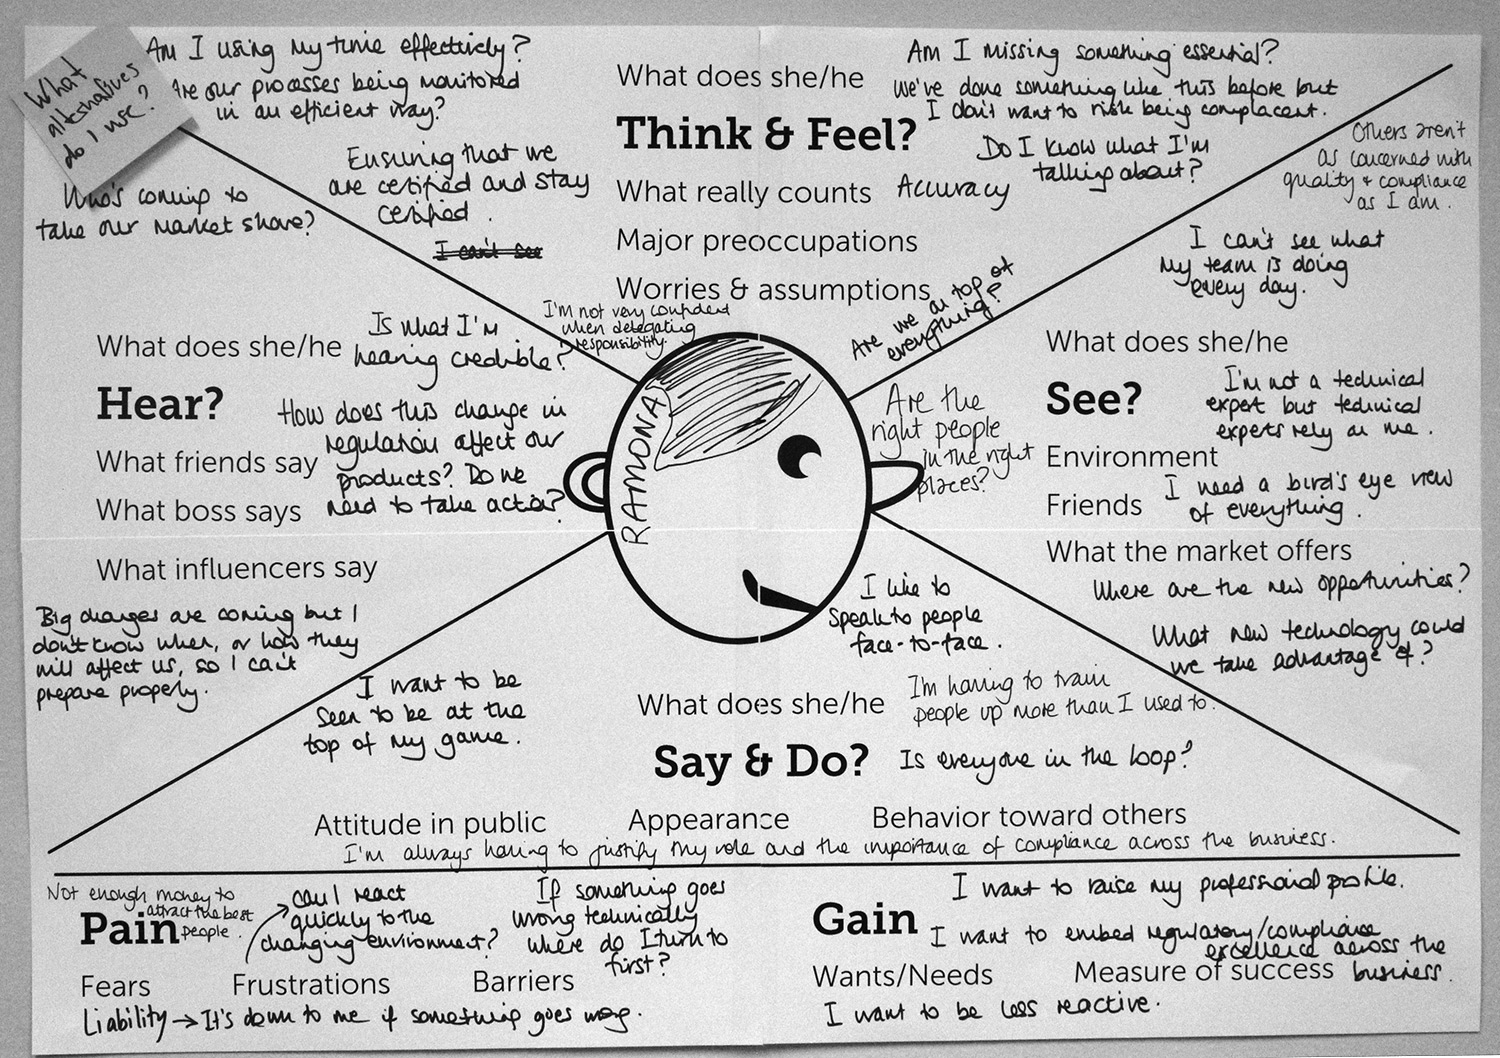 What
alternatives
do I use?
Am I using my time effectively?
Are our processes being monitored
in an efficient way?
Ensuring that we
are certified and stay
certified.
I can't see
Who's coming to
take our market share?
What does she/he
Think & Feel?
What really counts
Accuracy
Major preoccupations
Worries & assumptions
Am I missing something essential?
We've done something like this before but
I don't want to risk being complacent.
Do I know what I'm
talking about?
I'm not very confident
when delegating
responsibility.
Are we on top of
everything?
Others aren't
as concerned with
quality & compliance
as I am.
I can't see what
my team is doing
every day.
What does she/he
Hear?
What friends say
What boss says
What influencers say
Is what I'm
hearing credible?
How does this change in
regulation affect our
products? Do we
need to take action?
Big changes are coming but I
don't know when, or how they
will affect us, so I can't
prepare properly.
RAMONA
Are the
right people
in the right
places?
What does she/he
See?
Environment
Friends
What the market offers
I'm not a technical
expert but technical
experts rely on me.
I need a bird's eye view
of everything.
Where are the new opportunities?
What new technology could
we take advantage of?
I like to
speak to people
face-to-face.
I want to be
seen to be at the
top of my game.
What does she/he
Say & Do?
I'm having to train
people up more than I used to.
Is everyone in the loop?
Attitude in public
Appearance
Behavior toward others
I'm always having to justify my role and the importance of compliance across the business.
Not enough money to
attract the best
people.
Pain
Can I react
quickly to the
changing environment?
If something goes
wrong technically
where do I turn to
first?
Fears
Frustrations
Barriers
Liability → It's down to me if something goes wrong.
Gain
I want to raise my professional profile.
I want to embed regulatory/compliance
excellence across the
business.
Wants/Needs
Measure of success
I want to be less reactive.